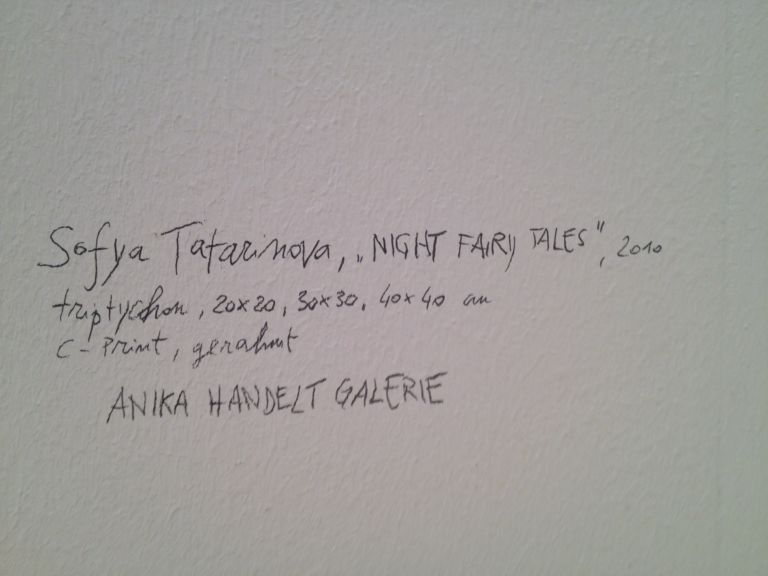 Sofya Tatarinova, „NIGHT FAIRY TALES", 2010
triptychon, 20x20, 30x30, 40x40 cm
C-Print, gerahmt
ANIKA HANDELT GALERIE